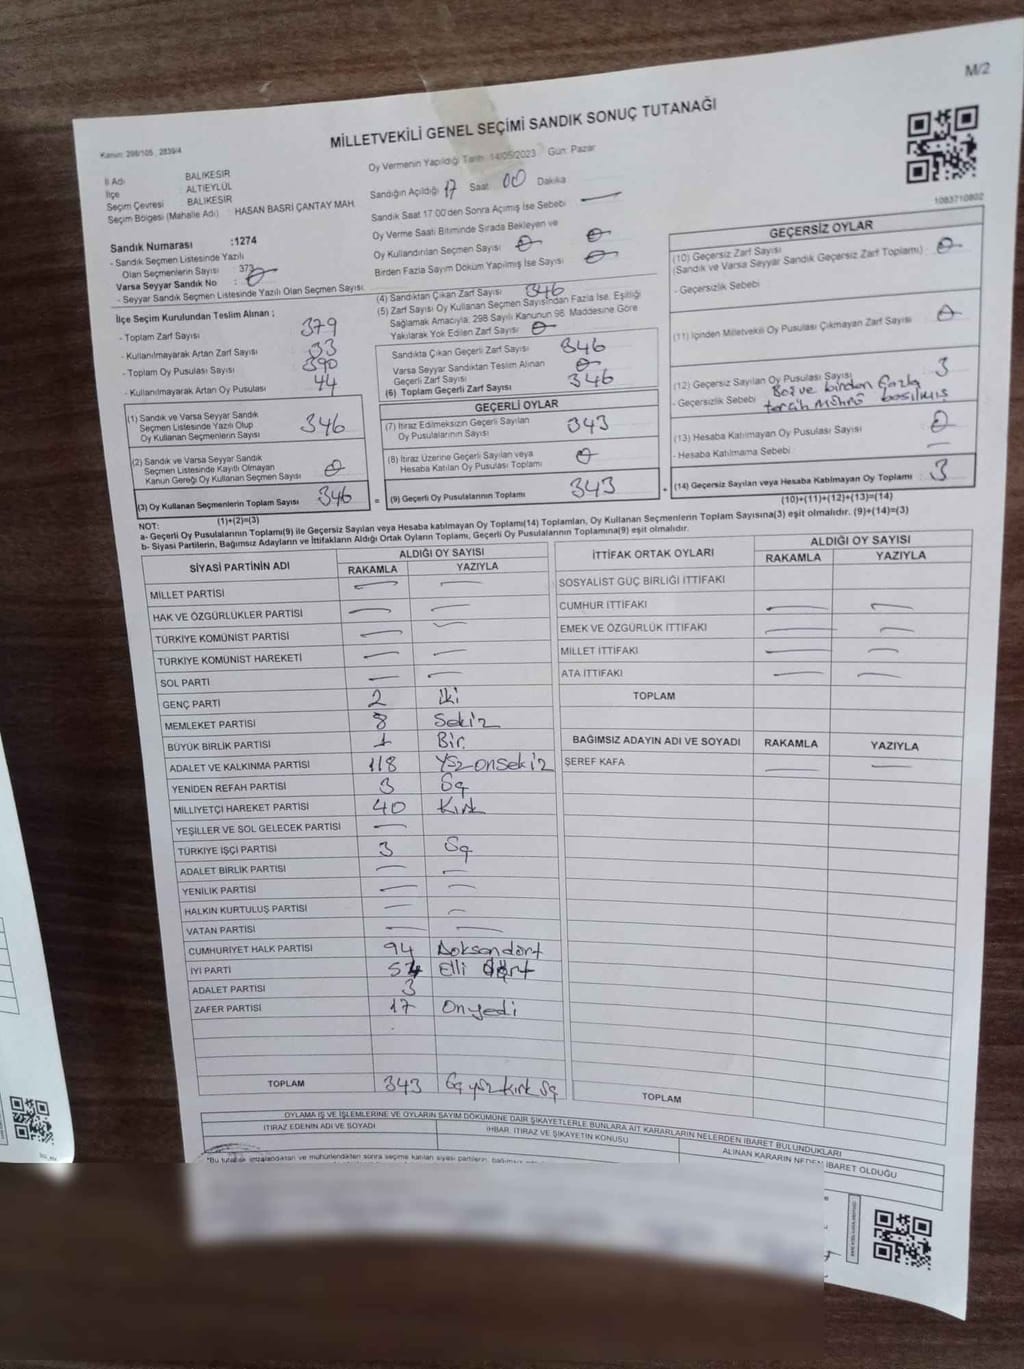 M/2
MİLLETVEKİLİ GENEL SEÇİMİ SANDIK SONUÇ TUTANAĞI
Kanun: 298/105 , 2839/4
Oy Vermenin Yapıldığı Tarih: 14/05/2023 Gün: Pazar
İl Adı BALIKESİR
İlçe ALTIEYLÜL
Seçim Çevresi BALIKESİR
Seçim Bölgesi (Mahalle Adı) : HASAN BASRİ ÇANTAY MAH.
Sandığın Açıldığı 17 Saat 00 Dakika
Sandık Saat 17:00'den Sonra Açımış İse Sebebi —
Oy Verme Saati Bitiminde Sırada Bekleyen ve
Oy Kullandırılan Seçmen Sayısı 0
Birden Fazla Sayım Döküm Yapılmış İse Sayısı 0
1083710802
Sandık Numarası :1274
- Sandık Seçmen Listesinde Yazılı
Olan Seçmenlerin Sayısı 373
Varsa Seyyar Sandık No : 0
- Seyyar Sandık Seçmen Listesinde Yazılı Olan Seçmen Sayısı:
İlçe Seçim Kurulundan Teslim Alınan ;
- Toplam Zarf Sayısı 379
- Kullanılmayarak Artan Zarf Sayısı 33
- Toplam Oy Pusulası Sayısı 390
- Kullanılmayarak Artan Oy Pusulası 44
(1) Sandık ve Varsa Seyyar Sandık
Seçmen Listesinde Yazılı Olup
Oy Kullanan Seçmenlerin Sayısı 346
(2) Sandık ve Varsa Seyyar Sandık
Seçmen Listesinde Kayıtlı Olmayan
Kanun Gereği Oy Kullanan Seçmen Sayısı 0
(3) Oy Kullanan Seçmenlerin Toplam Sayısı 346
(1)+(2)=(3)
(4) Sandıktan Çıkan Zarf Sayısı 346
(5) Zarf Sayısı Oy Kullanan Seçmen Sayısından Fazla İse, Eşitliği
Sağlamak Amacıyla, 298 Sayılı Kanunun 98. Maddesine Göre
Yakılarak Yok Edilen Zarf Sayısı 0
Sandıkta Çıkan Geçerli Zarf Sayısı 346
Varsa Seyyar Sandıktan Teslim Alınan
Geçerli Zarf Sayısı 0
(6) Toplam Geçerli Zarf Sayısı 346
GEÇERLİ OYLAR
(7) İtiraz Edilmeksizin Geçerli Sayılan
Oy Pusulalarının Sayısı 343
(8) İtiraz Üzerine Geçerli Sayılan veya
Hesaba Katılan Oy Pusulası Toplamı 0
= (9) Geçerli Oy Pusulalarının Toplamı 343
GEÇERSİZ OYLAR
(10) Geçersiz Zarf Sayısı 0
(Sandık ve Varsa Seyyar Sandık Geçersiz Zarf Toplamı)
- Geçersizlik Sebebi
(11) İçinden Milletvekili Oy Pusulası Çıkmayan Zarf Sayısı 0
(12) Geçersiz Sayılan Oy Pusulası Sayısı 3
- Geçersizlik Sebebi Boş ve birden fazla
tercih mührü basılmış
(13) Hesaba Katılmayan Oy Pusulası Sayısı 0
- Hesaba Katılmama Sebebi —
+ (14) Geçersiz Sayılan veya Hesaba Katılmayan Oy Toplamı 3
(10)+(11)+(12)+(13)=(14)
NOT:
a- Geçerli Oy Pusulalarının Toplamı(9) ile Geçersiz Sayılan veya Hesaba katılmayan Oy Toplamı(14) Toplamları, Oy Kullanan Seçmenlerin Toplam Sayısına(3) eşit olmalıdır. (9)+(14)=(3)
b- Siyasi Partilerin, Bağımsız Adayların ve İttifakların Aldığı Ortak Oyların Toplamı, Geçerli Oy Pusulalarının Toplamına(9) eşit olmalıdır.
SİYASİ PARTİNİN ADI ALDIĞI OY SAYISI
RAKAMLA YAZIYLA
MİLLET PARTİSİ — —
HAK VE ÖZGÜRLÜKLER PARTİSİ — —
TÜRKİYE KOMÜNİST PARTİSİ — —
TÜRKİYE KOMÜNİST HAREKETİ — —
SOL PARTİ — —
GENÇ PARTİ 2 İki
MEMLEKET PARTİSİ 8 Sekiz
BÜYÜK BİRLİK PARTİSİ 1 Bir
ADALET VE KALKINMA PARTİSİ 118 Yüzonsekiz
YENİDEN REFAH PARTİSİ 3 Üç
MİLLİYETÇİ HAREKET PARTİSİ 40 Kırk
YEŞİLLER VE SOL GELECEK PARTİSİ —
TÜRKİYE İŞÇİ PARTİSİ 3 Üç
ADALET BİRLİK PARTİSİ — —
YENİLİK PARTİSİ — —
HALKIN KURTULUŞ PARTİSİ — —
VATAN PARTİSİ — —
CUMHURİYET HALK PARTİSİ 94 Doksandört
İYİ PARTİ 54 Elli dört
ADALET PARTİSİ 3
ZAFER PARTİSİ 17 Onyedi
TOPLAM 343 Üçyüzkırküç
İTTİFAK ORTAK OYLARI ALDIĞI OY SAYISI
RAKAMLA YAZIYLA
SOSYALİST GÜÇ BİRLİĞİ İTTİFAKI
CUMHUR İTTİFAKI — —
EMEK VE ÖZGÜRLÜK İTTİFAKI — —
MİLLET İTTİFAKI — —
ATA İTTİFAKI — —
TOPLAM
BAĞIMSIZ ADAYIN ADI VE SOYADI RAKAMLA YAZIYLA
ŞEREF KAFA — —
TOPLAM
OYLAMA İŞ VE İŞLEMLERİNE VE OYLARIN SAYIM DÖKÜMÜNE DAİR ŞİKAYETLERLE BUNLARA AİT KARARLARIN NELERDEN İBARET BULUNDUKLARI
İTİRAZ EDENİN ADI VE SOYADI
İHBAR, İTİRAZ VE ŞİKAYETİN KONUSU
ALINAN KARARIN NEDEN İBARET OLDUĞU
*Bu tutanak imzalandıktan ve mühürlendikten sonra seçime katılan siyasi partilerin, bağımsız